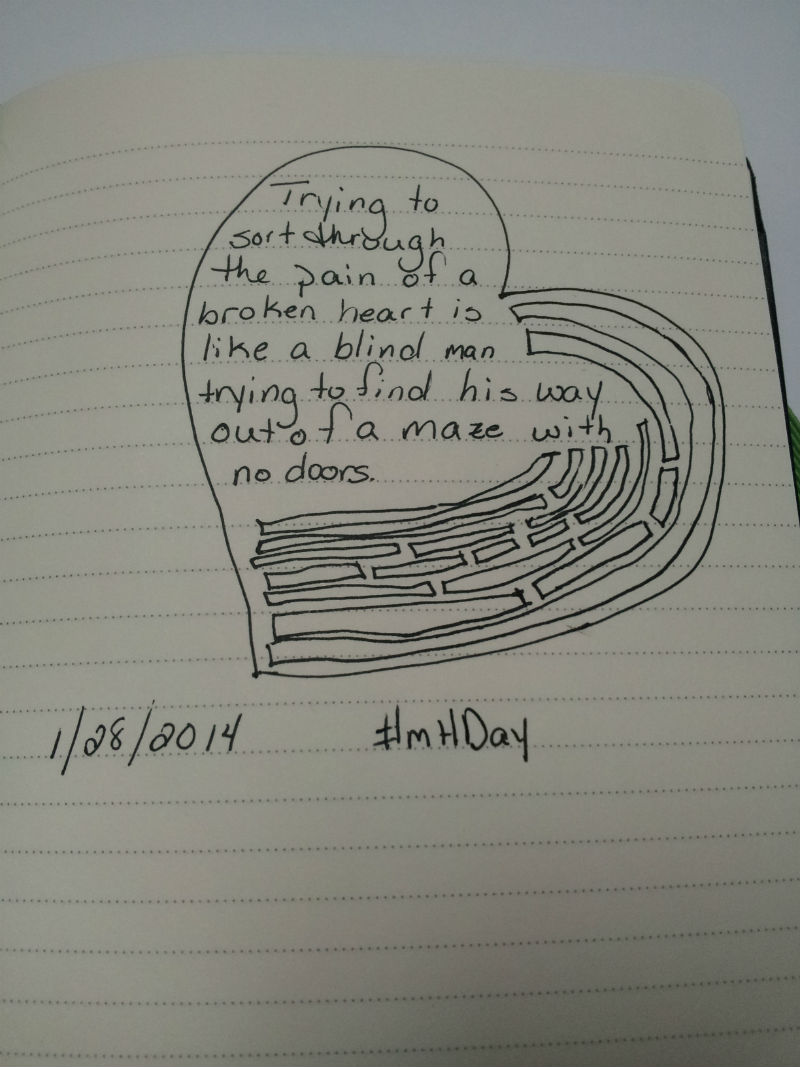 Trying to
sort through
the pain of a
broken heart is
like a blind man
trying to find his way
out of a maze with
no doors.
1/28/2014 #ImHDay